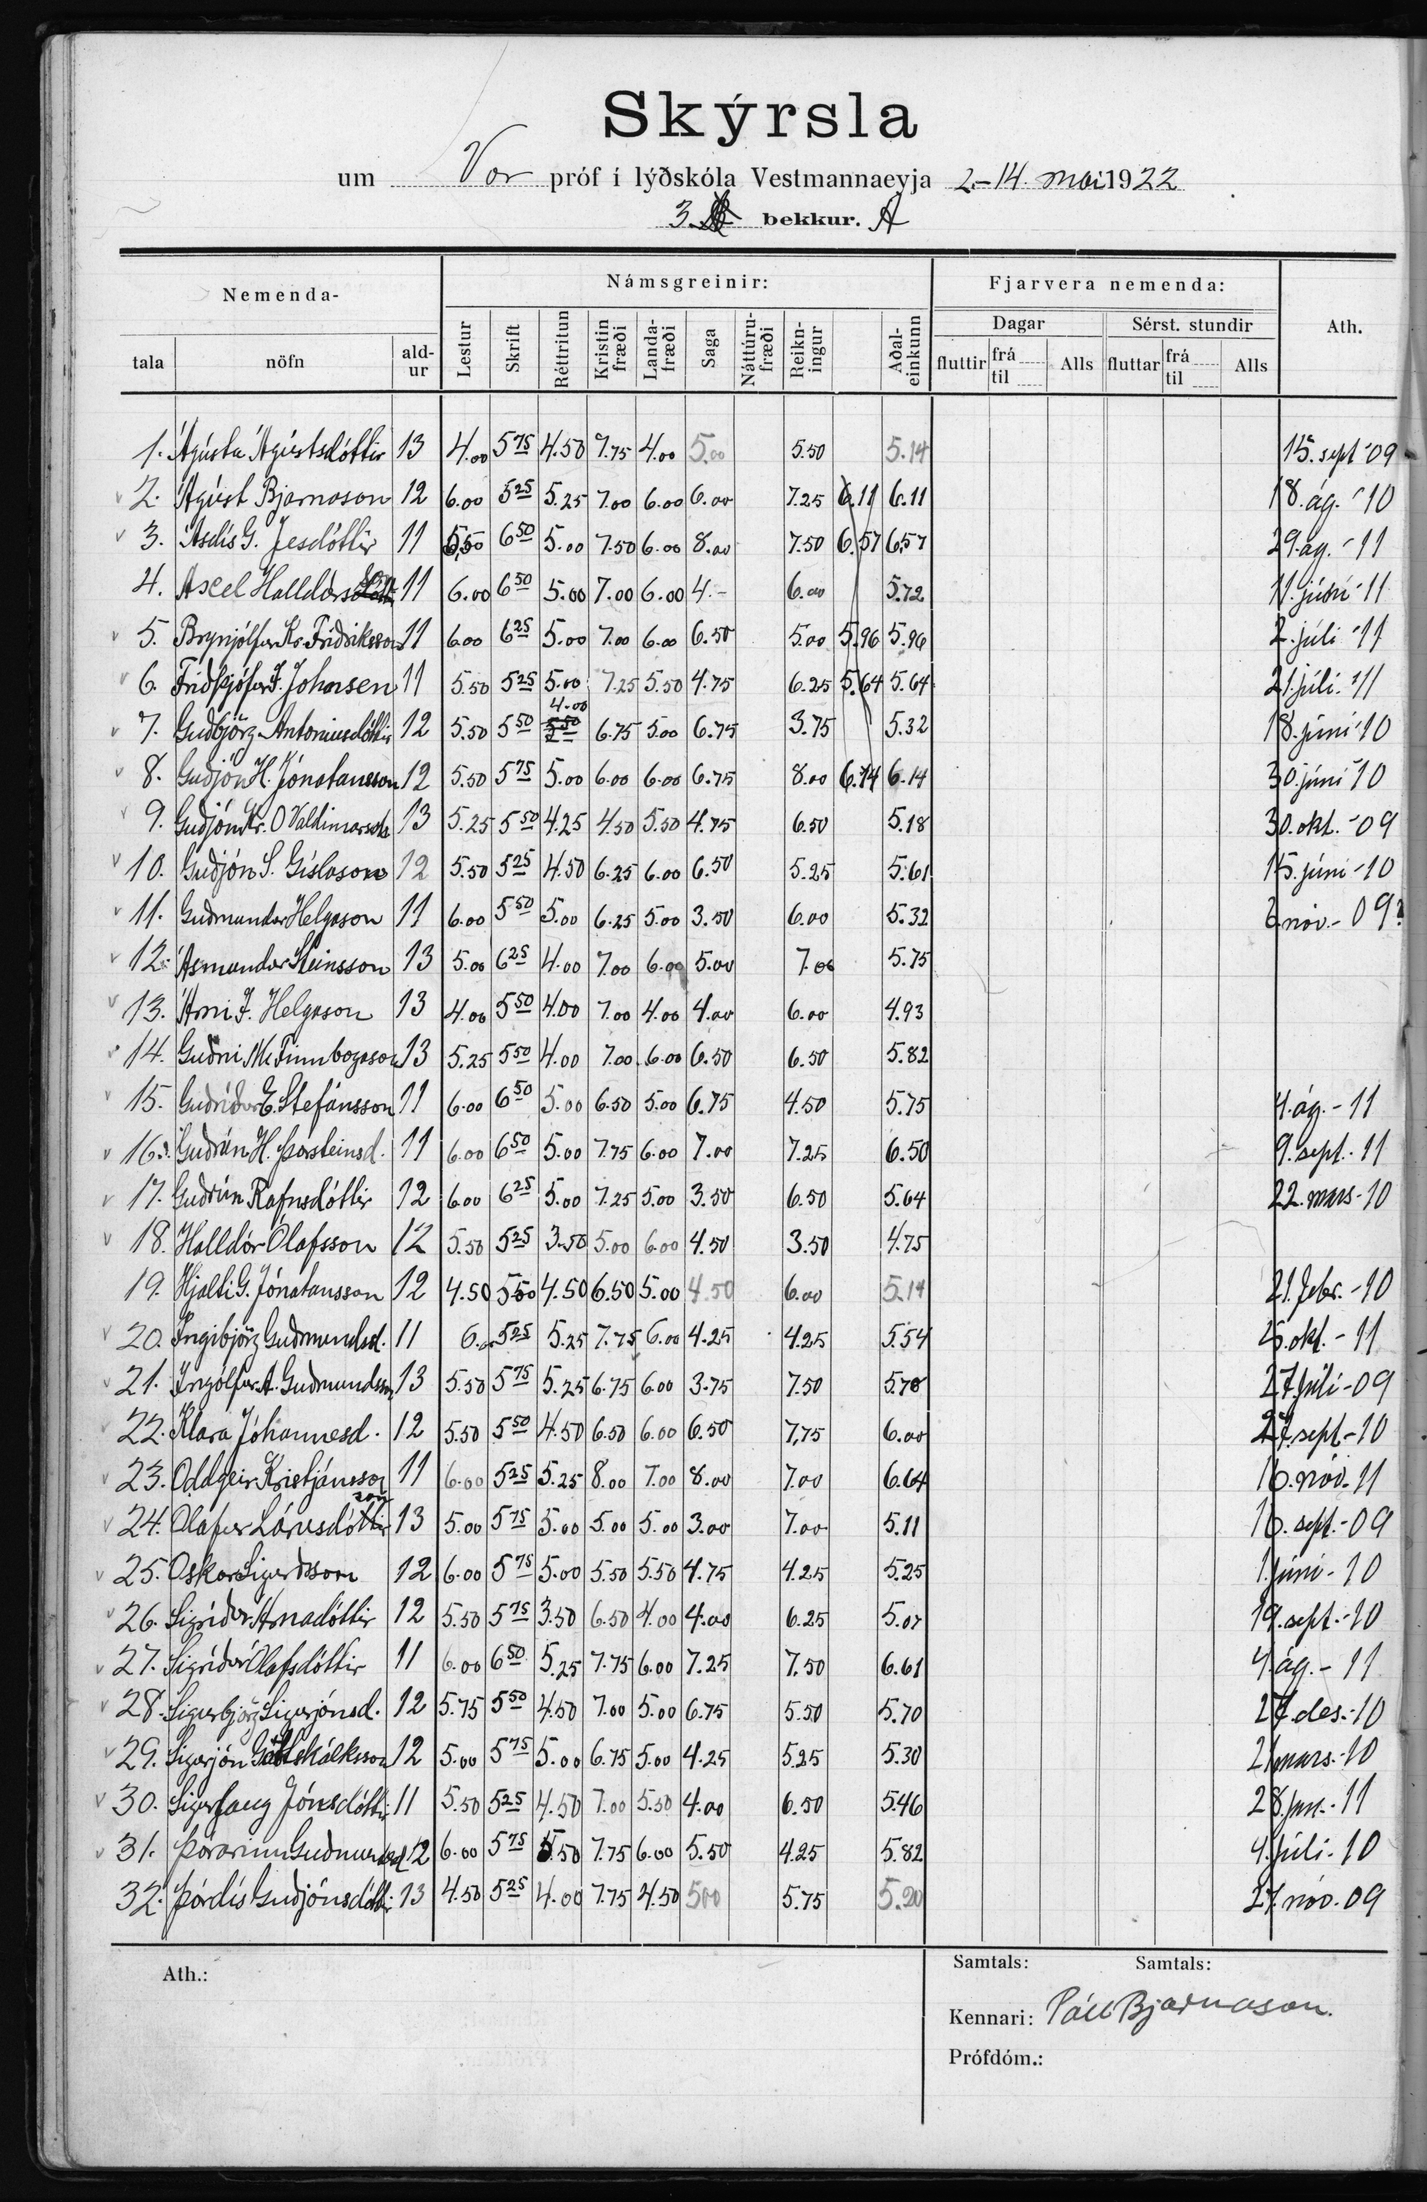 Skýrsla
um Vor próf í lýðskóla Vestmannaeyja 2.-14. mai 1922
3. bekkur. A
Nemenda- Námsgreinir: Fjarvera nemenda: Ath.
Dagar Sérst. stundir
tala nöfn ald-ur Lestur Skrift Réttritun Kristin fræði Landa-fræði Saga Náttúru-fræði Reikn-ingur Aðal-einkunn fluttir frá til Alls fluttar frá til Alls
1. Ágústa Ágústsdóttir 13 4.00 5.75 4.50 7.75 4.00 5.00 5.50 5.14 15. sept '09
2. Ágúst Bjarnason 12 6.00 5.25 5.25 7.00 6.00 6.00 7.25 6.11 6.11 18. ág. '10
3. Ásdís G. Jesdóttir 11 5.50 6.50 5.00 7.50 6.00 8.00 7.50 6.57 6.57 29. ág. - 11
4. Axel Halldórs 11 6.00 6.50 5.00 7.00 6.00 4.- 6.00 5.72 11. júní - 11
5. Brynjólfur Kr. Friðriksson 11 6.00 6.25 5.00 7.00 6.00 6.50 5.00 5.96 5.96 2. júlí '11
6. Friðþjófur J. Johnsen 11 5.50 5.25 5.00 7.25 5.50 4.75 6.25 5.64 5.64 21. júlí. '11
7. Guðbjörg Antoniusdóttir 12 5.50 5.50 4.00 6.75 5.00 6.75 3.75 5.32 18. júní '10
8. Guðjón H. Jónatansson 12 5.50 5.75 5.00 6.00 6.00 6.75 8.00 6.14 6.14 30. júní '10
9. Guðjón Kr. O Valdimarsson 13 5.25 5.50 4.25 4.50 5.50 4.75 6.50 5.18 30. okt. - 09
10. Guðjón S. Gíslason 12 5.50 5.25 4.50 6.25 6.00 6.50 5.25 5.61 15. júní - 10
11. Guðmundur Helgason 11 6.00 5.50 5.00 6.25 5.00 3.50 6.00 5.32 nóv. - 09?
12. Ásmundur Steinsson 13 5.00 6.25 4.00 7.00 6.00 5.00 7.00 5.75
13. Árni J. Helgason 13 4.00 5.50 4.00 7.00 4.00 4.00 6.00 4.93
14. Guðni M. Finnbogason 13 5.25 5.50 4.00 7.00 6.00 6.50 6.50 5.82
15. Guðríður E. Stefánsson 11 6.00 6.50 5.00 6.50 5.00 6.75 4.50 5.75 4. ág. - 11
16. Guðrún H. Þorsteinsd. 11 6.00 6.50 5.00 7.75 6.00 7.00 7.25 6.50 9. sept. 11
17. Guðrún Rafnsdóttir 12 6.00 6.25 5.00 7.25 5.00 3.50 6.50 5.64 22. mars - 10
18. Halldór Ólafsson 12 5.50 5.25 3.50 5.00 6.00 4.50 3.50 4.75
19. Hjalti G. Jónatansson 12 4.50 5.50 4.50 6.50 5.00 4.50 6.00 5.14 21. febr. - 10
20. Ingibjörg Guðmundsd. 11 6.00 5.25 5.25 7.75 6.00 4.25 4.25 5.54 5. okt. - 11
21. Ingólfur A. Guðmundsson 13 5.50 5.75 5.25 6.75 6.00 3.75 7.50 5.78 27. júlí - 09
22. Klara Jóhannesd. 12 5.50 5.50 4.50 6.50 6.00 6.50 7.75 6.00 27. sept. - 10
23. Oddgeir Kristjánsson 11 6.00 5.25 5.25 8.00 7.00 8.00 7.00 6.64 16. nóv. 11
24. Ólafur Lárusdóttir son 13 5.00 5.75 5.00 5.00 5.00 3.00 7.00 5.11 16. sept. - 09
25. Óskar Sigurðsson 12 6.00 5.75 5.00 5.50 5.50 4.75 4.25 5.25 1. júní - 10
26. Sigríður Árnadóttir 12 5.50 5.75 3.50 6.50 4.00 4.00 6.25 5.07 19. sept. - 10
27. Sigríður Ólafsdóttir 11 6.00 6.50 5.25 7.75 6.00 7.25 7.50 6.61 4. ág. - 11
28. Sigurbjörg Sigurjónsd. 12 5.75 5.50 4.50 7.00 5.00 6.75 5.50 5.70 27. des. - 10
29. Sigurjón Gottskálksson 12 5.00 5.75 5.00 6.75 5.00 4.25 5.25 5.30 21 mars. - 10
30. Sigurlaug Jónsdóttir 11 5.50 5.25 4.50 7.00 5.50 4.00 6.50 5.46 28. jan. - 11
31. Þórarinn Guðmundsd 12 6.00 5.75 5.50 7.75 6.00 5.50 4.25 5.82 4. júlí - 10
32. Þórdís Guðjónsdóttir 13 4.50 5.25 4.00 7.75 4.50 5.00 5.75 5.20 27. nóv. 09
Ath.: Samtals: Samtals:
Kennari: Páll Bjarnason.
Prófdóm.: